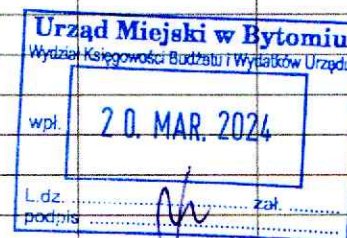 Urząd Miejski w Bytomiu
Wydział Księgowości Budżetu i Wydatków Urzędu
wpł. 20. MAR. 2024
L.dz. .................... zał. .........
podpis ....................